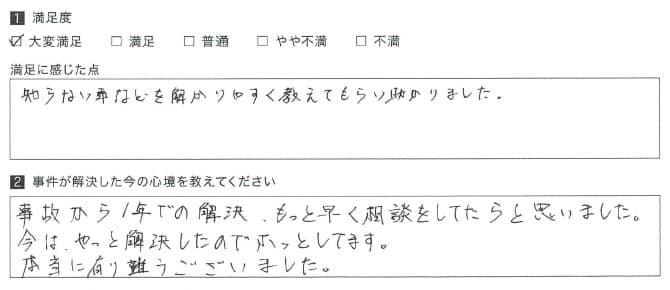 1 満足度
☑ 大変満足 □ 満足 □ 普通 □ やや不満 □ 不満
満足に感じた点
知らない事などを解かりやすく教えてもらい助かりました。
2 事件が解決した今の心境を教えてください
事故から1年での解決、もっと早く相談をしてたらと思いました。
今は、やっと解決したのでホっとしてます。
本当に有り難うございました。